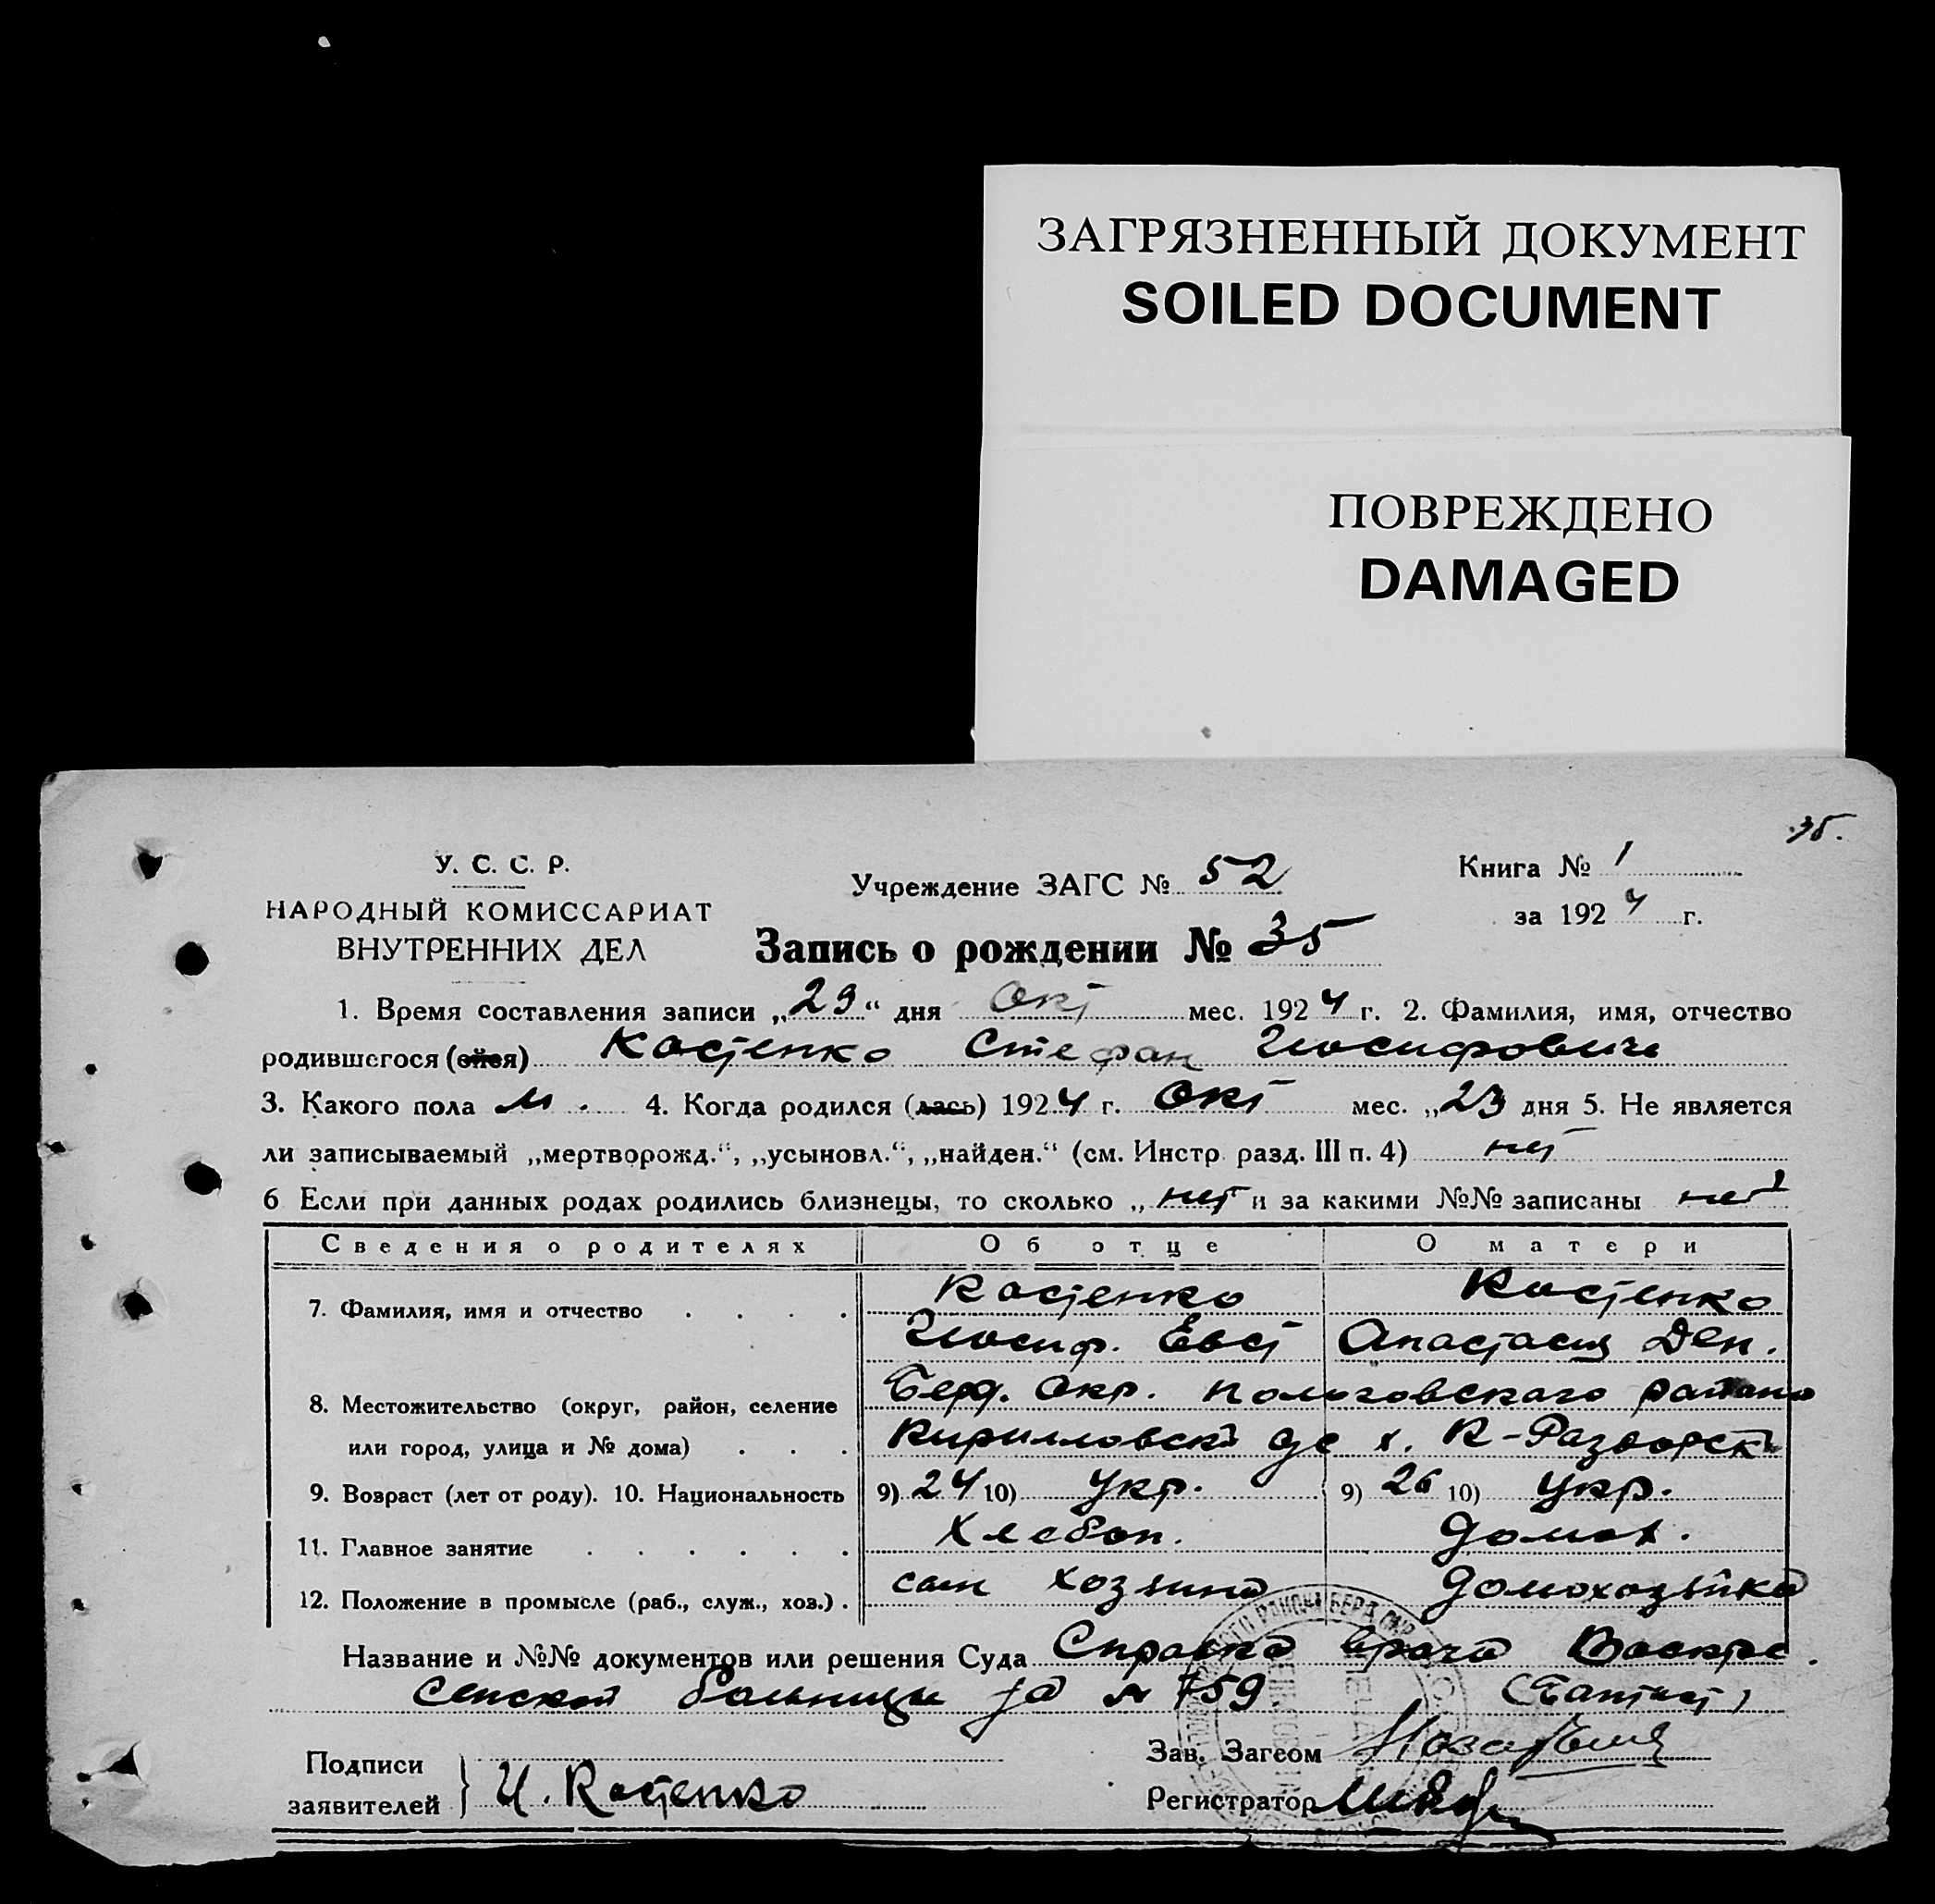 ЗАГРЯЗНЕННЫЙ ДОКУМЕНТ
SOILED DOCUMENT
ПОВРЕЖДЕНО
DAMAGED
35.
У. С. С. Р.
Учреждение ЗАГС № 52
Книга № 1
НАРОДНЫЙ КОМИССАРИАТ
за 1924 г.
ВНУТРЕННИХ ДЕЛ
Запись о рождении № 35
1. Время составления записи „29“ дня Окт мес. 1924 г. 2. Фамилия, имя, отчество
родившегося (ойся) Костенко Стефан Иосифович
3. Какого пола м. 4. Когда родился (лась) 1924 г. Окт мес. „23 дня 5. Не является
ли записываемый „мертворожд.“, „усыновл.“, „найден.“ (см. Инстр. разд. III п. 4) нет
6 Если при данных родах родились близнецы, то сколько „нет и за какими №№ записаны нет
Сведения о родителях Об отце О матери
7. Фамилия, имя и отчество Костенко Костенко
Иосиф. Евст Анастасия Ден.
8. Местожительство (округ, район, селение Берд. окр. Пологовскаго района
или город, улица и № дома) Кирилловск х. К-Раздорск
9. Возраст (лет от роду). 10. Национальность 9) 24 10) Укр. 9) 26 10) Укр.
11. Главное занятие Хлебоп. домох.
12. Положение в промысле (раб., служ., хоз.) сын хозяина домохозяйка
Название и №№ документов или решения Суда Справка врача Воскре
сенской больницы за № 759 (Баптист)
Подписи Зав. Загсом
заявителей И. Костенко Регистратор